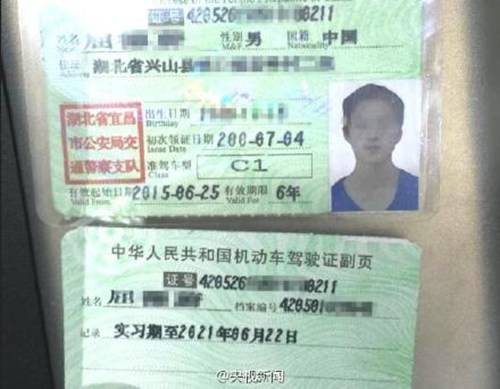 证号 420526 0211
屈 性别 男 国籍 中国
M&F Nationality
住址 湖北省兴山县
湖北省宜昌
市公安局交
通警察支队
出生日期
Birthday
初次领证日期 200-07-04
Issue Date
准驾车型 C1
Class
有效起始日期 2015-06-25 有效期限 6年
Valid From Valid For
中华人民共和国机动车驾驶证副页
证号 420526 0211
姓名 屈 档案编号 420501
记录 实习期至2021年06月22日
@央视新闻